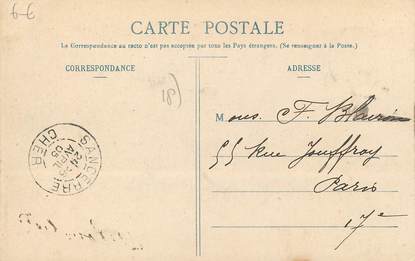 6-E
CARTE POSTALE
La Correspondance au recto n'est pas acceptée par tous les Pays étrangers. (Se renseigner à la Poste.)
CORRESPONDANCE
ADRESSE
18)
Mons. F.
55 Rue Jouffroy
Paris
17e
SANCERRE
24
AVRIL
06
CHER